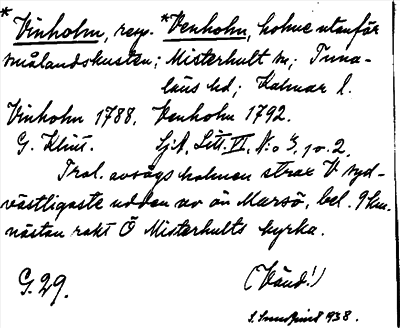 *Vinholm, resp. *Venholm, holme utanför
smålandskusten; Misterhult sn; Tuna-
läns hd; Kalmar l.
Vinholm 1788. Venholm 1792.
G. Klint. Sjk. Litt. VI, N:o 3, 1 o. 2.
Trol. avsågs holmen strax V syd-
västligaste udden av ön Marsö, bel. 9 km.
nästan rakt Ö Misterhults kyrka.
G. 29. (Vänd!)
1938.